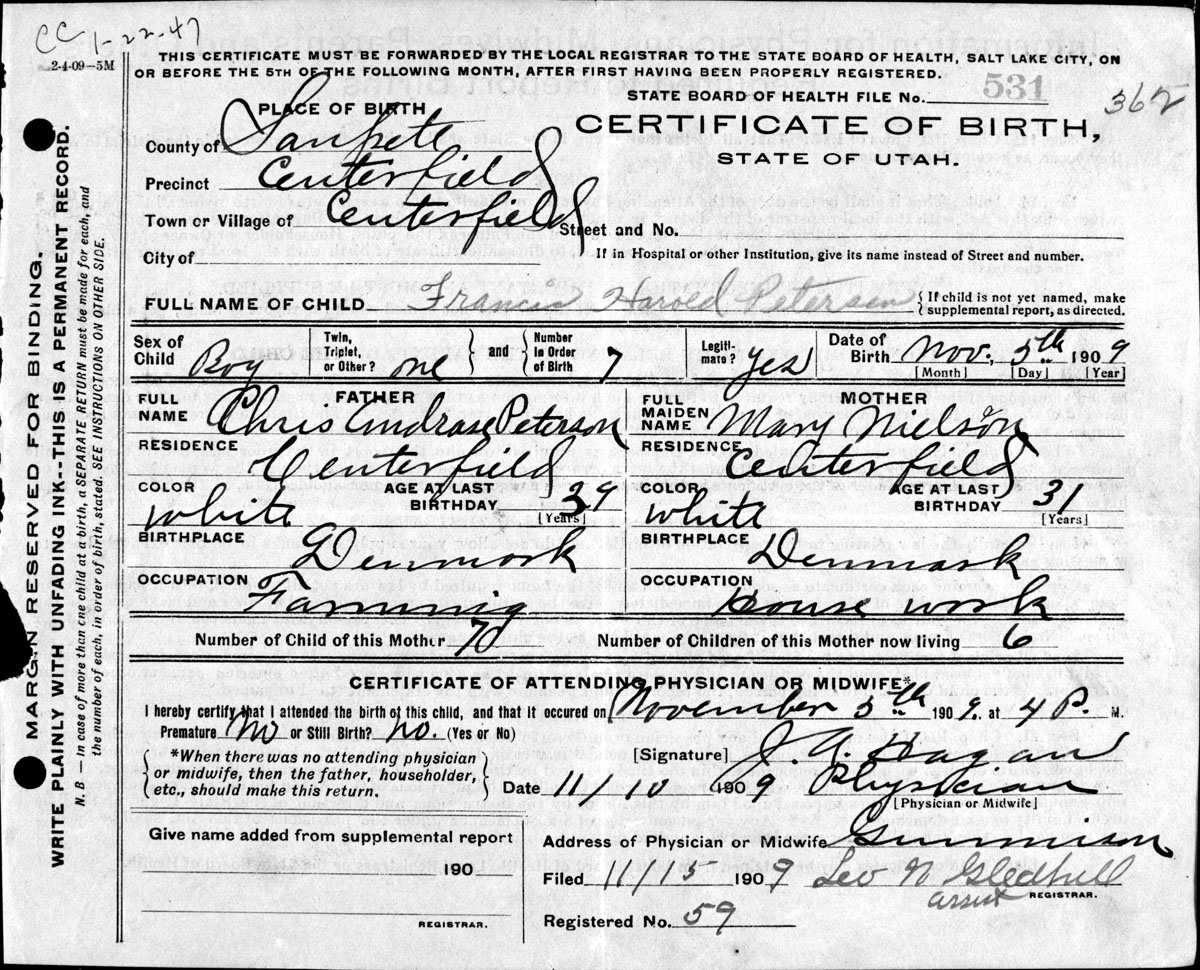 CC 1-22-47
2-4-09–5M
THIS CERTIFICATE MUST BE FORWARDED BY THE LOCAL REGISTRAR TO THE STATE BOARD OF HEALTH, SALT LAKE CITY, ON
OR BEFORE THE 5TH OF THE FOLLOWING MONTH, AFTER FIRST HAVING BEEN PROPERLY REGISTERED.
STATE BOARD OF HEALTH FILE No. 531
362
PLACE OF BIRTH
CERTIFICATE OF BIRTH,
STATE OF UTAH.
County of Sanpete
Precinct Centerfield
Town or Village of Centerfield Street and No.
City of
If in Hospital or other Institution, give its name instead of Street and number.
FULL NAME OF CHILD Francis Harold Petersen { If child is not yet named, make supplemental report, as directed.
Sex of Child Boy Twin, Triplet, or Other? one } and { Number in Order of Birth 7 Legiti-mate? yes Date of Birth Nov. 5th 1909
[Month] [Day] [Year]
FATHER
FULL NAME Chris Andrase Peterson
RESIDENCE Centerfield
COLOR white AGE AT LAST BIRTHDAY 39 [Years]
BIRTHPLACE Denmark
OCCUPATION Farming
MOTHER
FULL MAIDEN NAME Mary Nielson
RESIDENCE Centerfield
COLOR white AGE AT LAST BIRTHDAY 31 [Years]
BIRTHPLACE Denmark
OCCUPATION House work
Number of Child of this Mother 7 Number of Children of this Mother now living 6
CERTIFICATE OF ATTENDING PHYSICIAN OR MIDWIFE*
I hereby certify that I attended the birth of this child, and that it occured on November 5th 1909. at 4 P. M.
Premature No or Still Birth? no. (Yes or No)
*When there was no attending physician
or midwife, then the father, householder,
etc., should make this return.
[Signature] J. A. Hagan
Date 11/10 1909 Physician
[Physician or Midwife]
Give name added from supplemental report
190
REGISTRAR.
Address of Physician or Midwife Gunnison
Filed 11/15 1909 Leo N Gledhill
assist REGISTRAR.
Registered No. 59
MARGIN RESERVED FOR BINDING.
WRITE PLAINLY WITH UNFADING INK--THIS IS A PERMANENT RECORD.
N. B — In case of more than one child at a birth, a SEPARATE RETURN must be made for each, and
the number of each, in order of birth, stated. SEE INSTRUCTIONS ON OTHER SIDE.